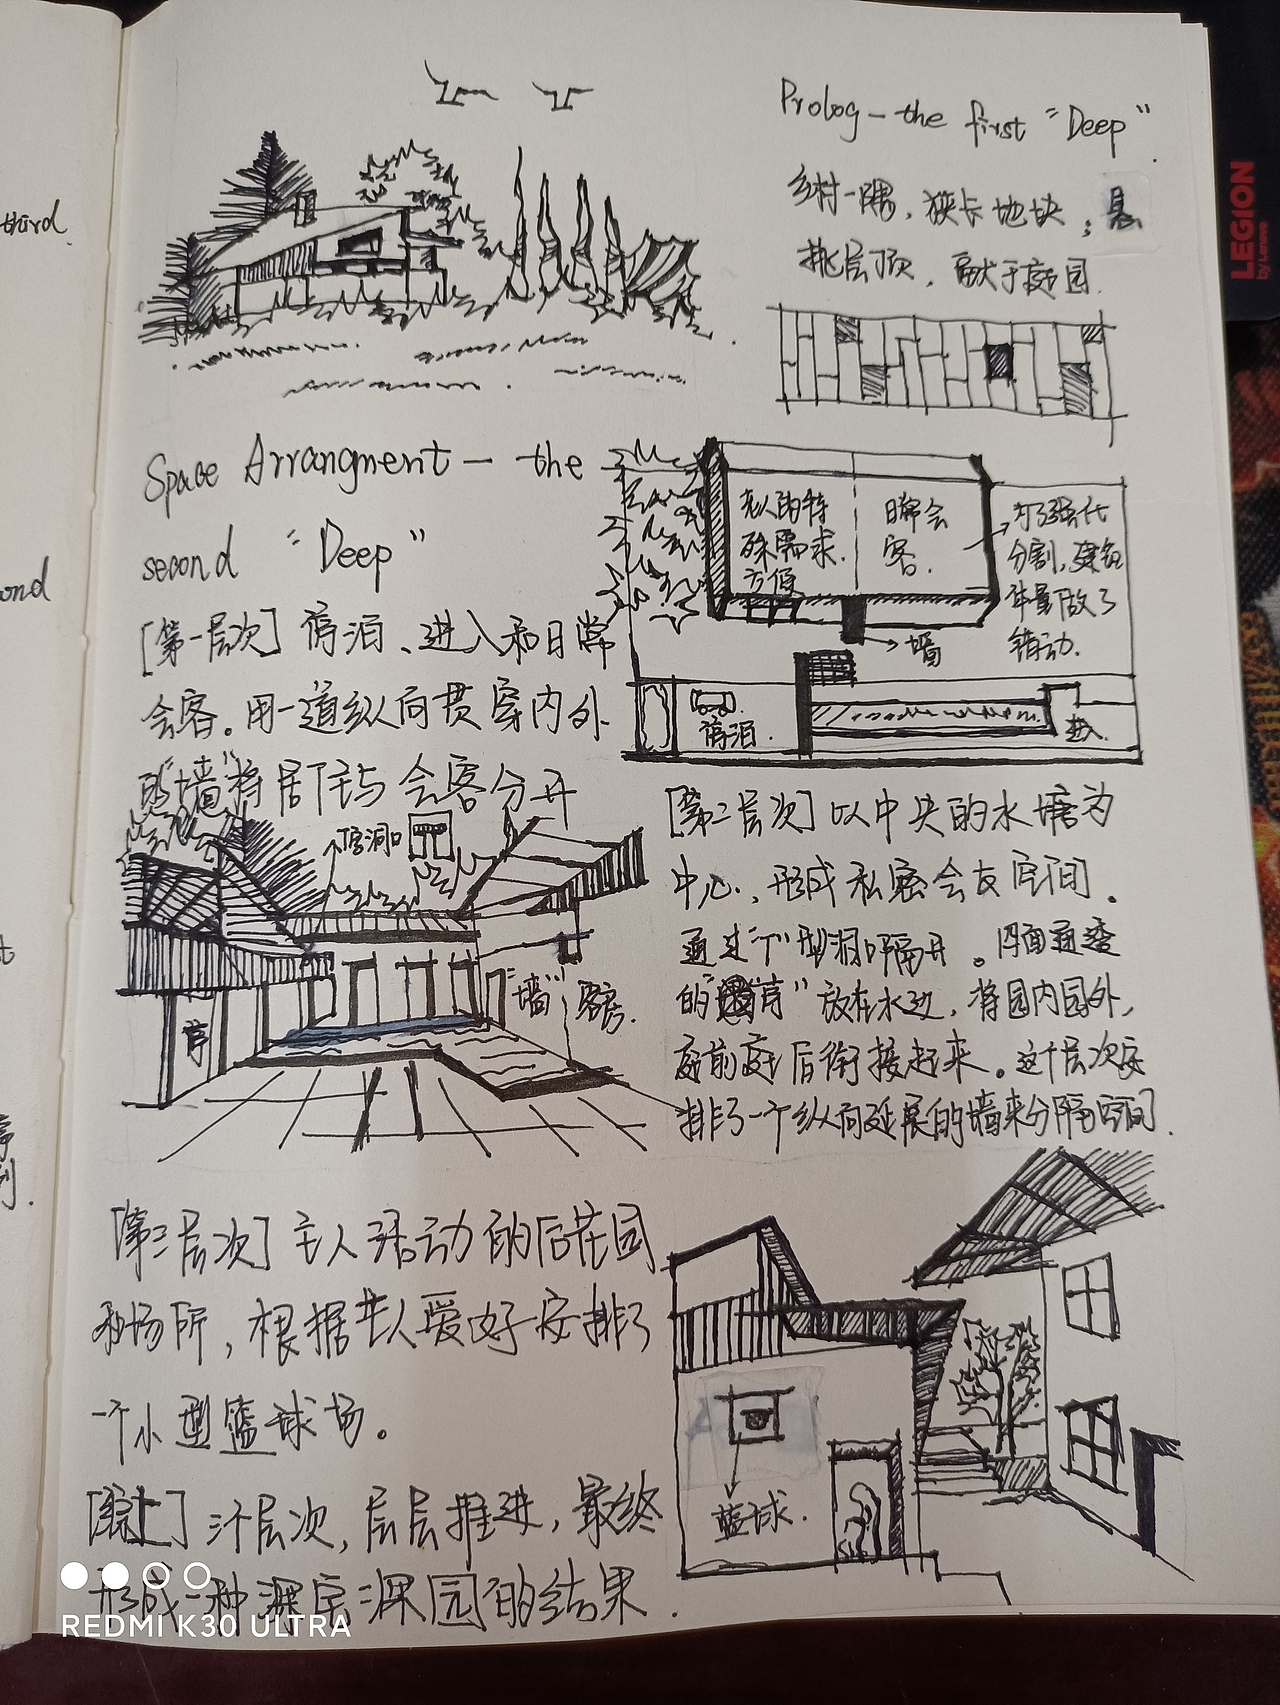 third
ond
Prolog - the first "Deep"
乡村一隅，狭长地块；悬
挑层顶，献于庭园
Space Arrangment - the
second "Deep"
[第一层次] 停泊、进入和日常
会客。用一道纵向贯穿内外
的"墙"将居住与会客分开
老人的特
殊需求.
方便
日常会
客.
为了强化
分割，建筑
体量做了
错动.
墙
停泊.
进入.
"门"洞口
亭
"墙"
客房.
[第二层次] 以中央的水塘为
中心，形成私密会友空间。
通过"门"型洞口隔开。四面通透
的"亭"放在水边，将园内园外，
庭前庭后衔接起来。这个层次安
排了一个纵向延展的墙来分隔空间.
[第三层次] 主人活动的后花园
和场所，根据主人爱好安排了
一个小型篮球场。
[综上] 三个层次，层层推进，最终
形成一种深宅深园的结果.
篮球.
LEGION
by Lenovo
REDMI K30 ULTRA